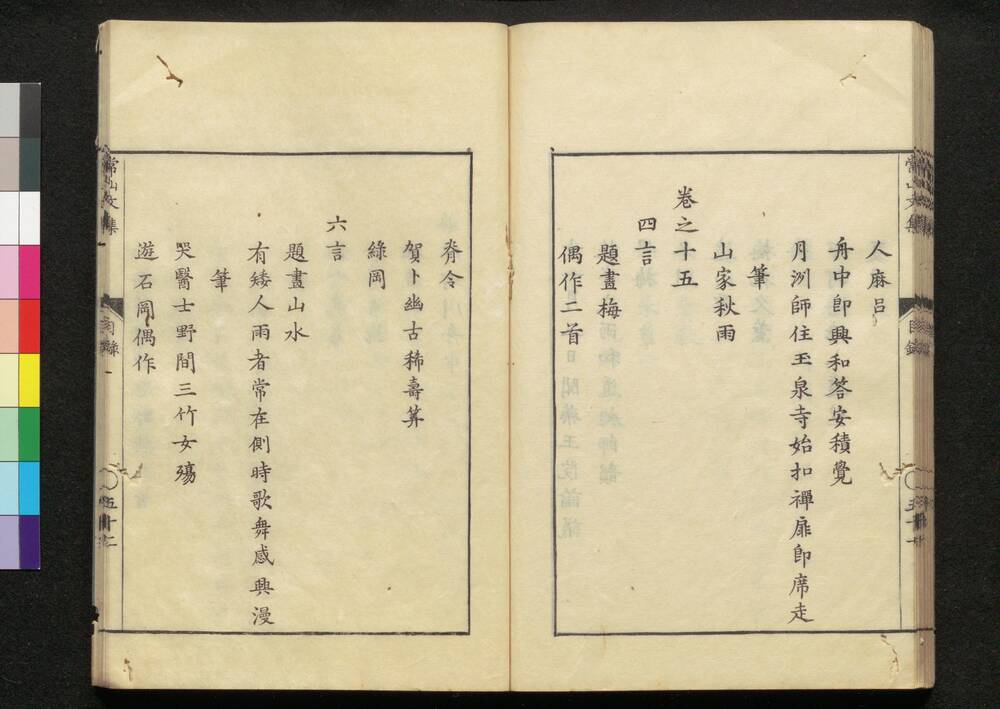 人麻呂
舟中即興和答安積覺
月洌師住玉泉寺始扣禪扉即席走
筆
山家秋雨
卷之十五
四言
題畫梅
偶作二首
脊令
賀卜幽古稀壽筭
綠岡
六言
題畫山水
有矮人雨者常在側時歌舞感興漫
筆
哭醫士野間三竹女殤
遊石岡偶作
常山文集
目錄
五十